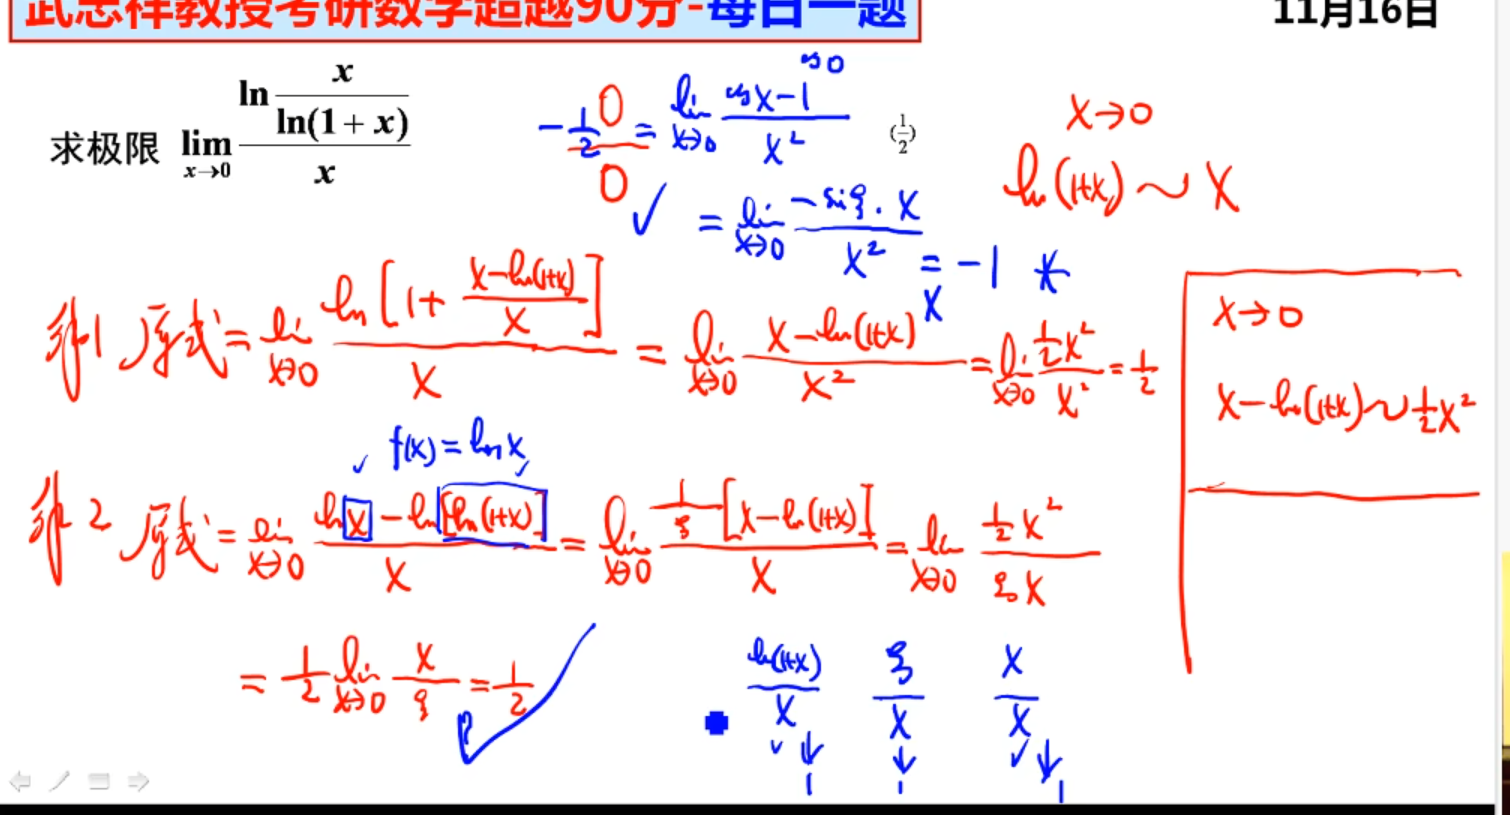 武忠祥教授考研数学超越90分-每日一题
11月16日
求极限 lim_{x→0} (ln (x / ln(1+x))) / x
-1/2 = lim_{x→0} (cos x - 1) / x² cos 0 (1/2)
0/0 ✓
= lim_{x→0} (-sin ξ · x) / x² = -1 ×
x
x→0
ln(1+x) ~ x
解1 原式 = lim_{x→0} ln[1 + (x - ln(1+x)) / x] / x = lim_{x→0} (x - ln(1+x)) / x² = lim_{x→0} (1/2 x²) / x² = 1/2
x→0
x - ln(1+x) ~ 1/2 x²
f(x) = ln x
解2 原式 = lim_{x→0} (ln x - ln[ln(1+x)]) / x = lim_{x→0} (1/ξ [x - ln(1+x)]) / x = lim_{x→0} (1/2 x²) / (ξ x)
= 1/2 lim_{x→0} x/ξ = 1/2
ln(1+x)/x ξ/x x/x
✓ ↓ ↓ ✓ ↓
1 1 1